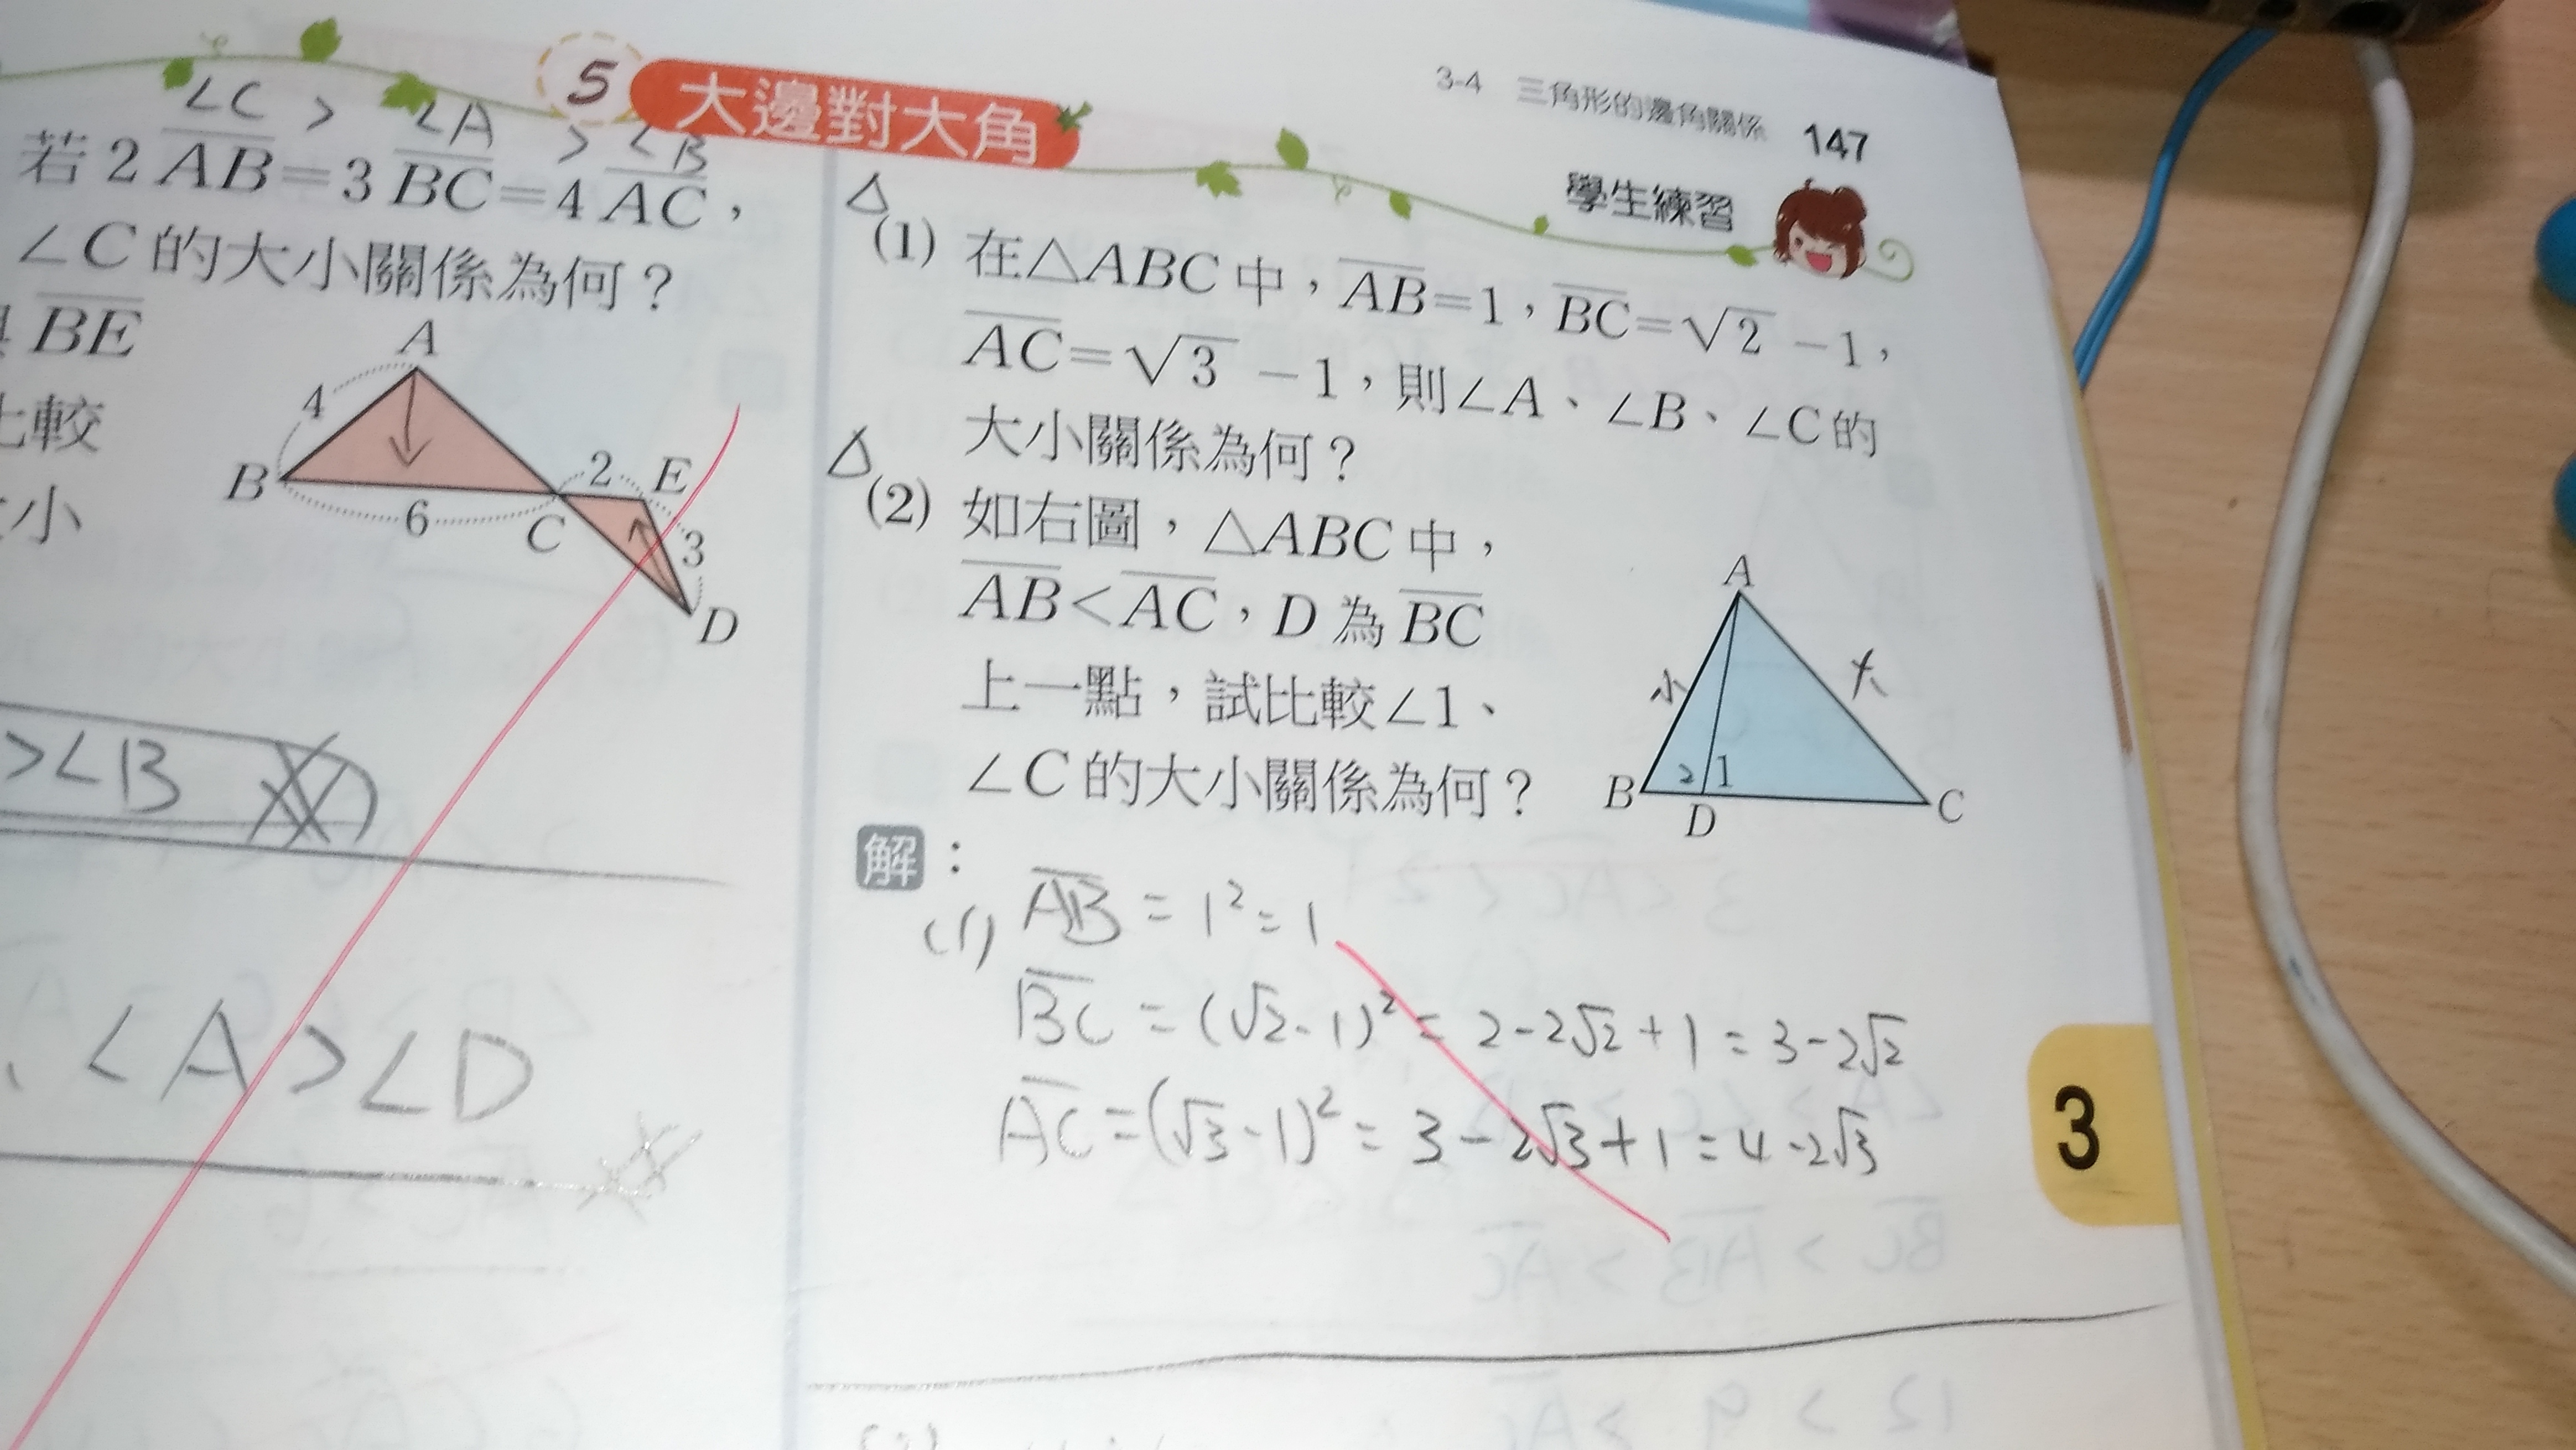 5 大邊對大角
3-4 三角形的邊角關係 147
學生練習
∠C > ∠A > ∠B
若 2 AB = 3 BC = 4 AC ,
∠C 的大小關係為何?
BE
比較
大小
A
4
B
6
C
2
E
3
D
>∠B
<A>∠D
△
(1) 在△ABC 中,AB=1,BC=√2 -1,
AC=√3 -1,則∠A、∠B、∠C的
大小關係為何?
△
(2) 如右圖,△ABC 中,
AB<AC,D 為 BC
上一點,試比較∠1、
∠C 的大小關係為何?
A
小
大
B
2
1
D
C
解:
(1) AB = 1² = 1
BC = (√2-1)² = 2-2√2+1 = 3-2√2
AC = (√3-1)² = 3-2√3+1 = 4-2√3
3